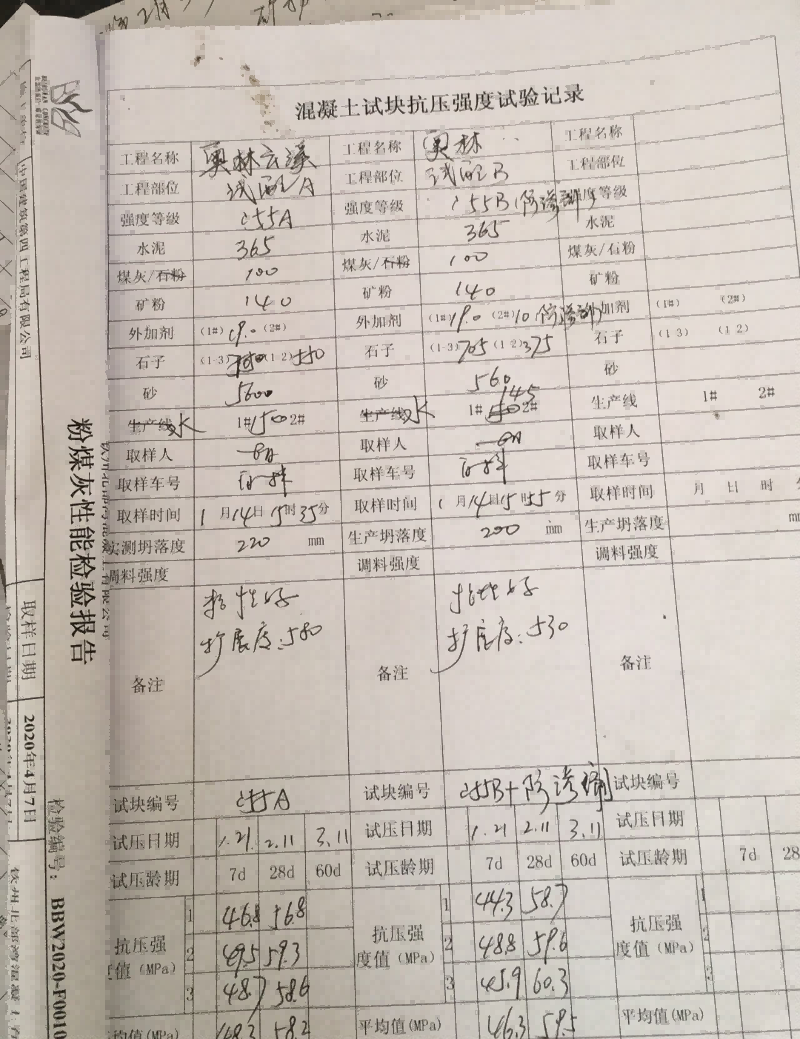 混凝土试块抗压强度试验记录
工程名称 奥林 工程名称 奥林 工程名称
工程部位 试配A 工程部位 试配B 工程部位
强度等级 C55A 强度等级 C55B(防渗剂) 强度等级
水泥 365 水泥 365 水泥
煤灰/石粉 100 煤灰/石粉 100 煤灰/石粉
矿粉 140 矿粉 140 矿粉
外加剂 (1#) 19.0 (2#) 外加剂 (1#) 19.0 (2#) 10 (防渗剂) 外加剂 (1#) (2#)
石子 (1-3) (1-2) 550 石子 (1-3) 705 (1-2) 375 石子 (1-3) (1-2)
砂 砂 560 砂
生产线 水 1# 150 2# 生产线 水 1# 145 2# 生产线 1# 2#
取样人 取样人 取样人
取样车号 取样车号 取样车号
取样时间 1月14日15时35分 取样时间 1月14日15时55分 取样时间 月 日 时
实测坍落度 220 mm 生产坍落度 200 mm 生产坍落度 mm
调料强度 调料强度 调料强度
备注 粘性好 备注 粘性好 备注
扩展度:580 扩展度:530
试块编号 C55A 试块编号 C55B+防渗剂 试块编号
试压日期 1.21 2.11 3.11 试压日期 1.21 2.11 3.11 试压日期
试压龄期 7d 28d 60d 试压龄期 7d 28d 60d 试压龄期 7d 28
抗压强度值(MPa) 抗压强度值(MPa) 抗压强度值(MPa)
1 46.8 56.8 1 44.3 58.7 1
2 49.5 59.3 2 48.8 59.6 2
3 48.7 58.6 3 45.9 60.3 3
平均值(MPa) 48.3 58.2 平均值(MPa) 46.3 59.5 平均值(MPa)
粉煤灰性能检验报告
中国建筑第四工程局有限公司
取样日期 2020年4月7日
检验编号: BBW2020-F0010
钦州北部湾混凝土有